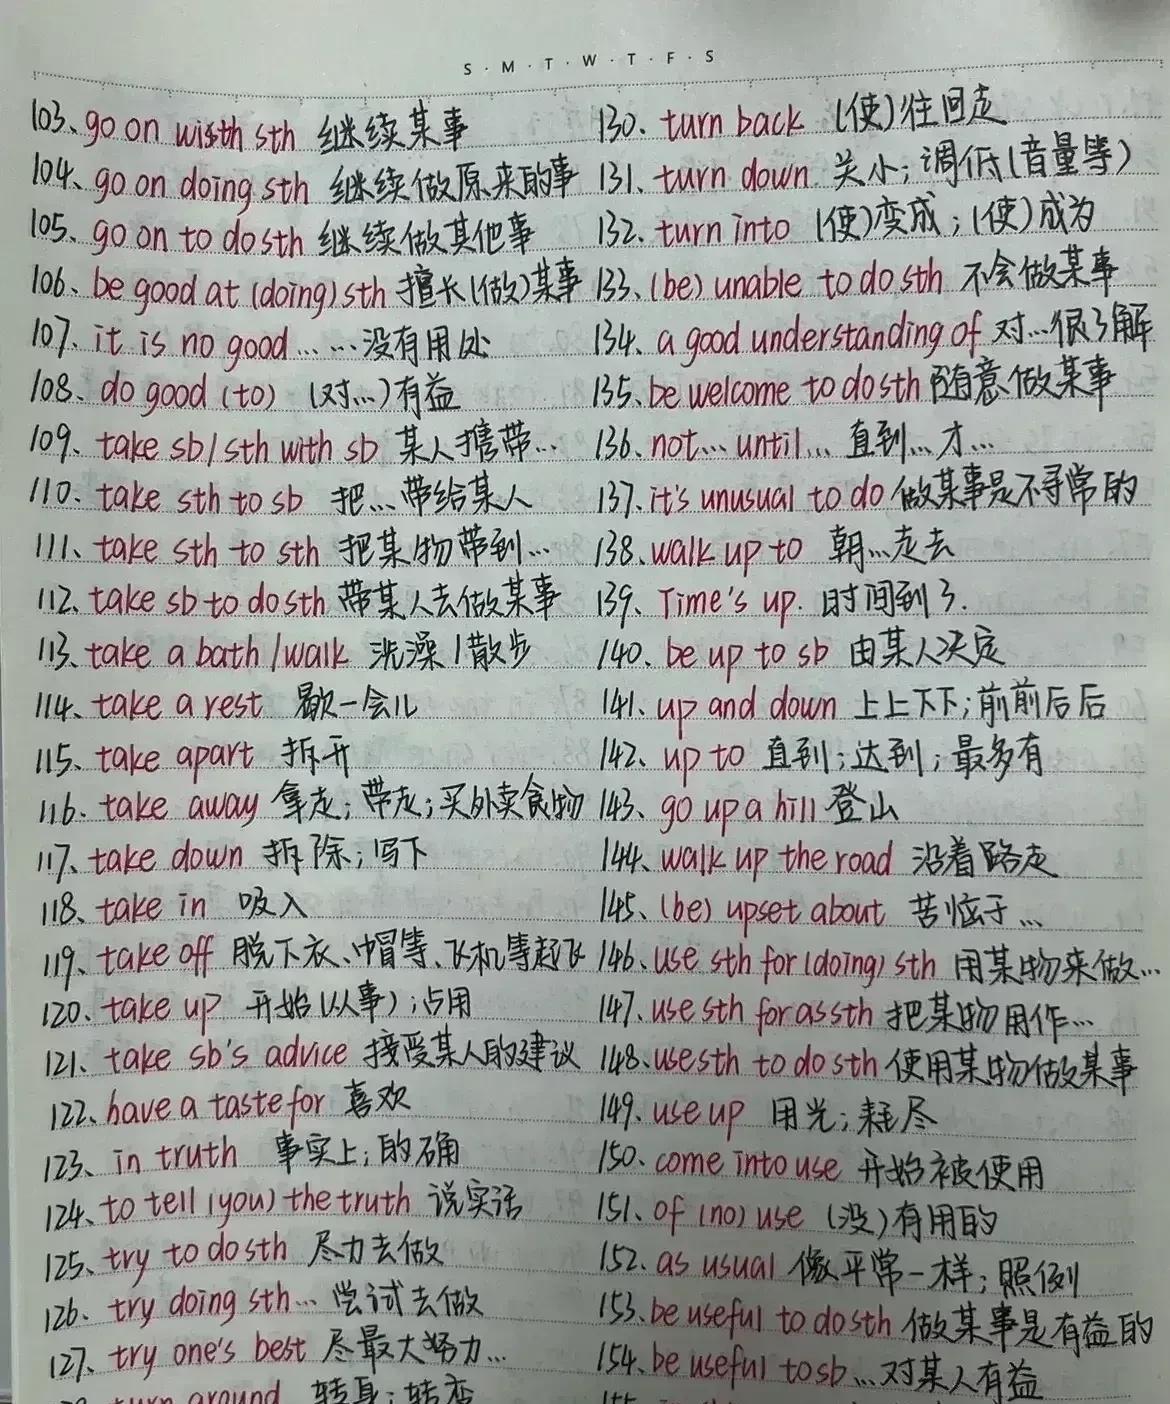 S · M · T · W · T · F · S
103、go on with sth 继续某事
104、go on doing sth 继续做原来的事
105、go on to do sth 继续做其他事
106、be good at (doing) sth 擅长(做)某事
107、it is no good... ...没有用处
108、do good (to) (对...)有益
109、take sb/sth with sb 某人携带...
110、take sth to sb 把...带给某人
111、take sth to sth 把某物带到...
112、take sb to do sth 带某人去做某事
113、take a bath/walk 洗澡/散步
114、take a rest 歇一会儿
115、take apart 拆开
116、take away 拿走;带走;买外卖食物
117、take down 拆除;写下
118、take in 吸入
119、take off 脱下衣、帽等、飞机等起飞
120、take up 开始(从事);占用
121、take sb's advice 接受某人的建议
122、have a taste for 喜欢
123、in truth 事实上;的确
124、to tell (you) the truth 说实话
125、try to do sth 尽力去做
126、try doing sth... 尝试去做
127、try one's best 尽最大努力...
turn around 转身;转变
130、turn back (使)往回走
131、turn down 关小;调低(音量等)
132、turn into (使)变成;(使)成为
133、(be) unable to do sth 不会做某事
134、a good understanding of 对...很了解
135、be welcome to do sth 随意做某事
136、not... until... 直到...才...
137、it's unusual to do 做某事是不寻常的
138、walk up to 朝...走去
139、Time's up. 时间到了.
140、be up to sb 由某人决定
141、up and down 上上下下;前前后后
142、up to 直到;达到;最多有
143、go up a hill 登山
144、walk up the road 沿着路走
145、(be) upset about 苦恼于...
146、use sth for (doing) sth 用某物来做...
147、use sth for as sth 把某物用作...
148、use sth to do sth 使用某物做某事
149、use up 用光;耗尽
150、come into use 开始被使用
151、of (no) use (没)有用的
152、as usual 像平常一样;照例
153、be useful to do sth 做某事是有益的
154、be useful to sb...对某人有益